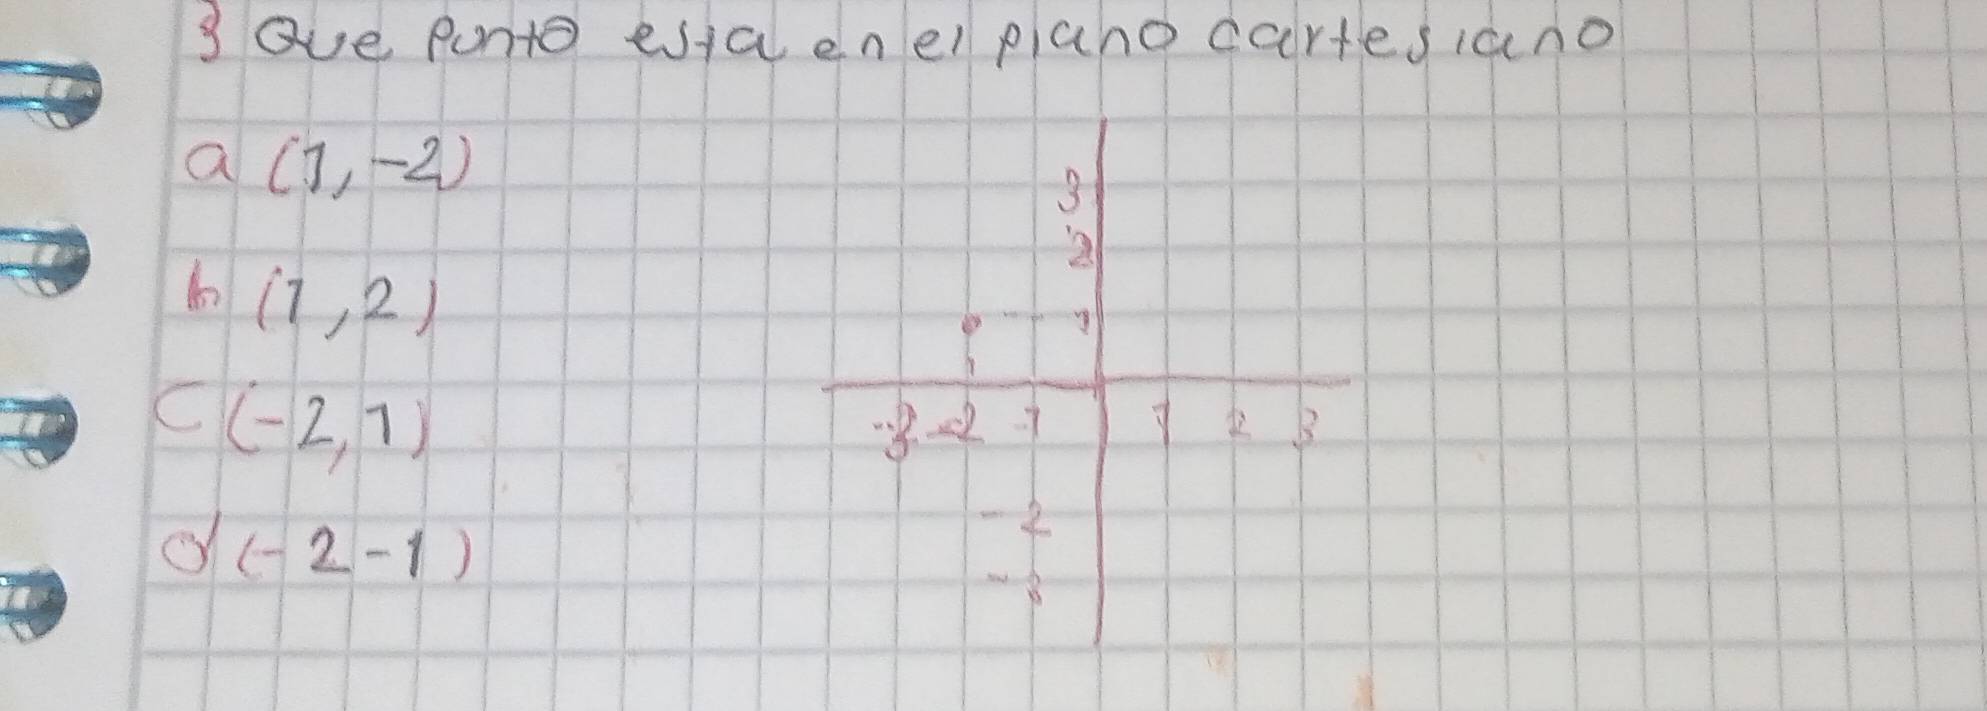 3 Que Punto esta en el plano cartesiano
a (1, -2)
b (1, 2)
c (-2, 1)
d (-2 -1)
3
2
1
-3 -2 -1 1 2 3
-2
-3